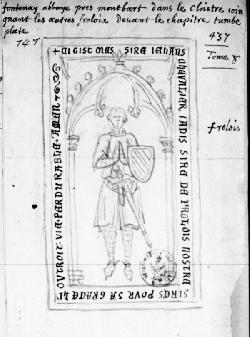 fontenay abbaye pres montbart dans le Cloistre join
gnant les autres froloix devant le chapitre tumbe
plate
747
437
Tome 8
frolois
+ CI GIST MES SIRE IEHANS
CHEVALIER IADIS SIRE DE FROLOIS NOSTRE
SIRES POVR SA GRACE LI
OVTROIT VIE PARDVRABLE AMEN